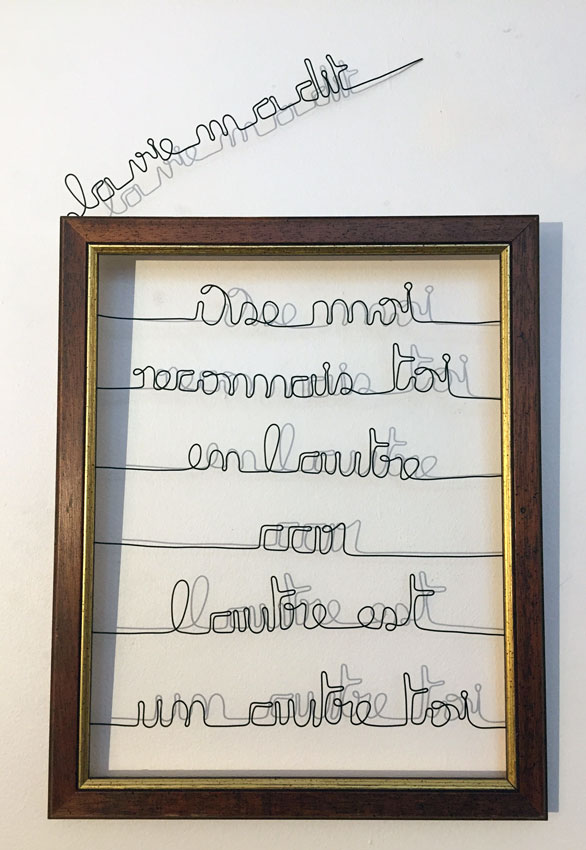 la vie ma dit
ose moi
reconnais toi
en lautre
car
lautre est
un autre toi